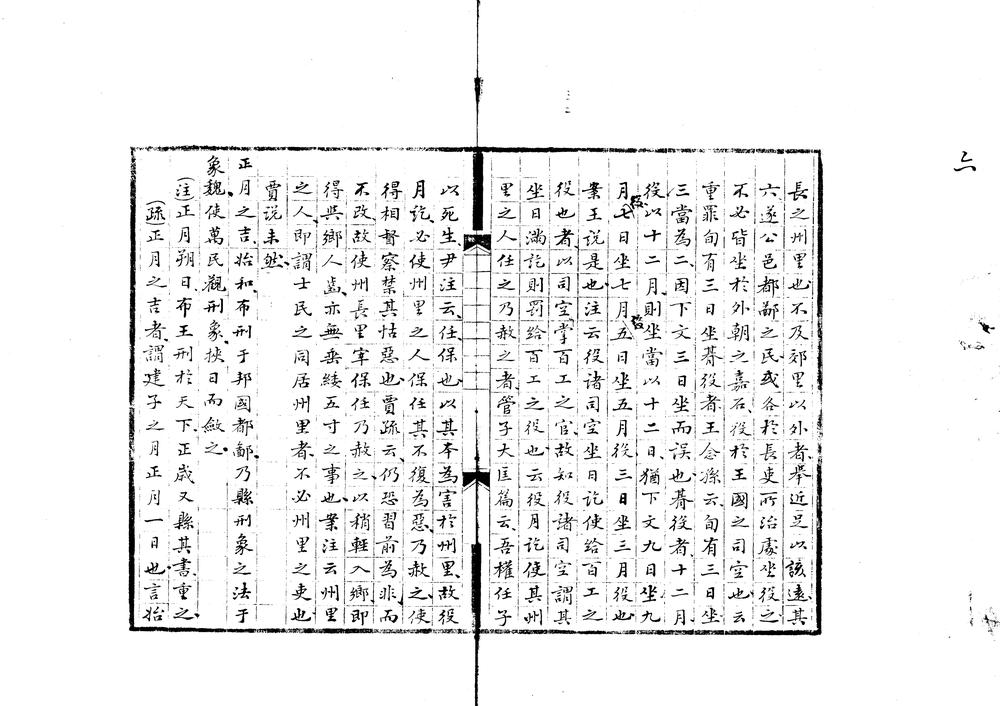 長之州里也不及郊里以外者舉近足以該遠其
六遂公邑都鄙之民或各於長吏所治處坐役之
不必皆坐於外朝之嘉石役於王國之司空也云
重罪旬有三日坐朞役者王念孫云旬有三日坐
三當為二因下文三日坐而誤也朞役者十二月
役以十二月則坐當以十二日猶下文九日坐九
月役七日坐七月役五日坐五月役三日坐三月役也
案王說是也注云役諸司空坐日訖使給百工之
役也者以司空掌百工之官故知役諸司空謂其
坐日滿訖則罰給百工之役也云役月訖使其州
里之人任之乃赦之者管子大匡篇云吾權任子
以死生尹注云任保也以其本為害於州里故役
月訖必使州里之人保任其不復為惡乃赦之使
得相督察禁其怙惡也賈疏云仍恐習前為非而
不改故使州長里宰保任乃赦之以稍輕入鄉即
得與鄉人齒亦無垂緌五寸之事也案注云州里
之人即謂士民之同居州里者不必州里之吏也
賈說未然
正月之吉始和布刑于邦國都鄙乃縣刑象之法于
象魏使萬民觀刑象挾日而斂之
(注)正月朔日布王刑於天下正歲又縣其書重之
(疏)正月之吉者謂建子之月正月一日也言始